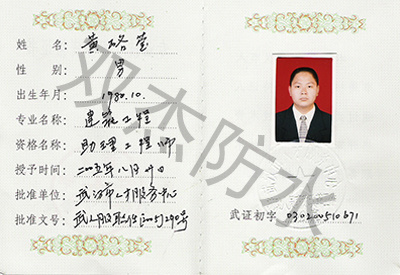 姓名: 黄珞莹
性别: 男
出生年月: 1980.10.
专业名称: 建筑工程
资格名称: 助理工程师
授予时间: 二〇〇五年八月廿日
批准单位: 武汉市人才服务中心
批准文号: 武人服职[2005]290号
武证初字 030200510671
双杰防水